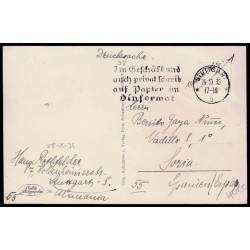 Drucksache
Im Geschäft und
auch privat schreib
auf Papier im
Dinformat
STUTTGART
17-18
Herrn
Benito Gaya Nuño,
Vadillo, 1º
Soria
Spanien
28-X-35
Hans Rothfelder
Stuttgart-S.
Alemania
55
55